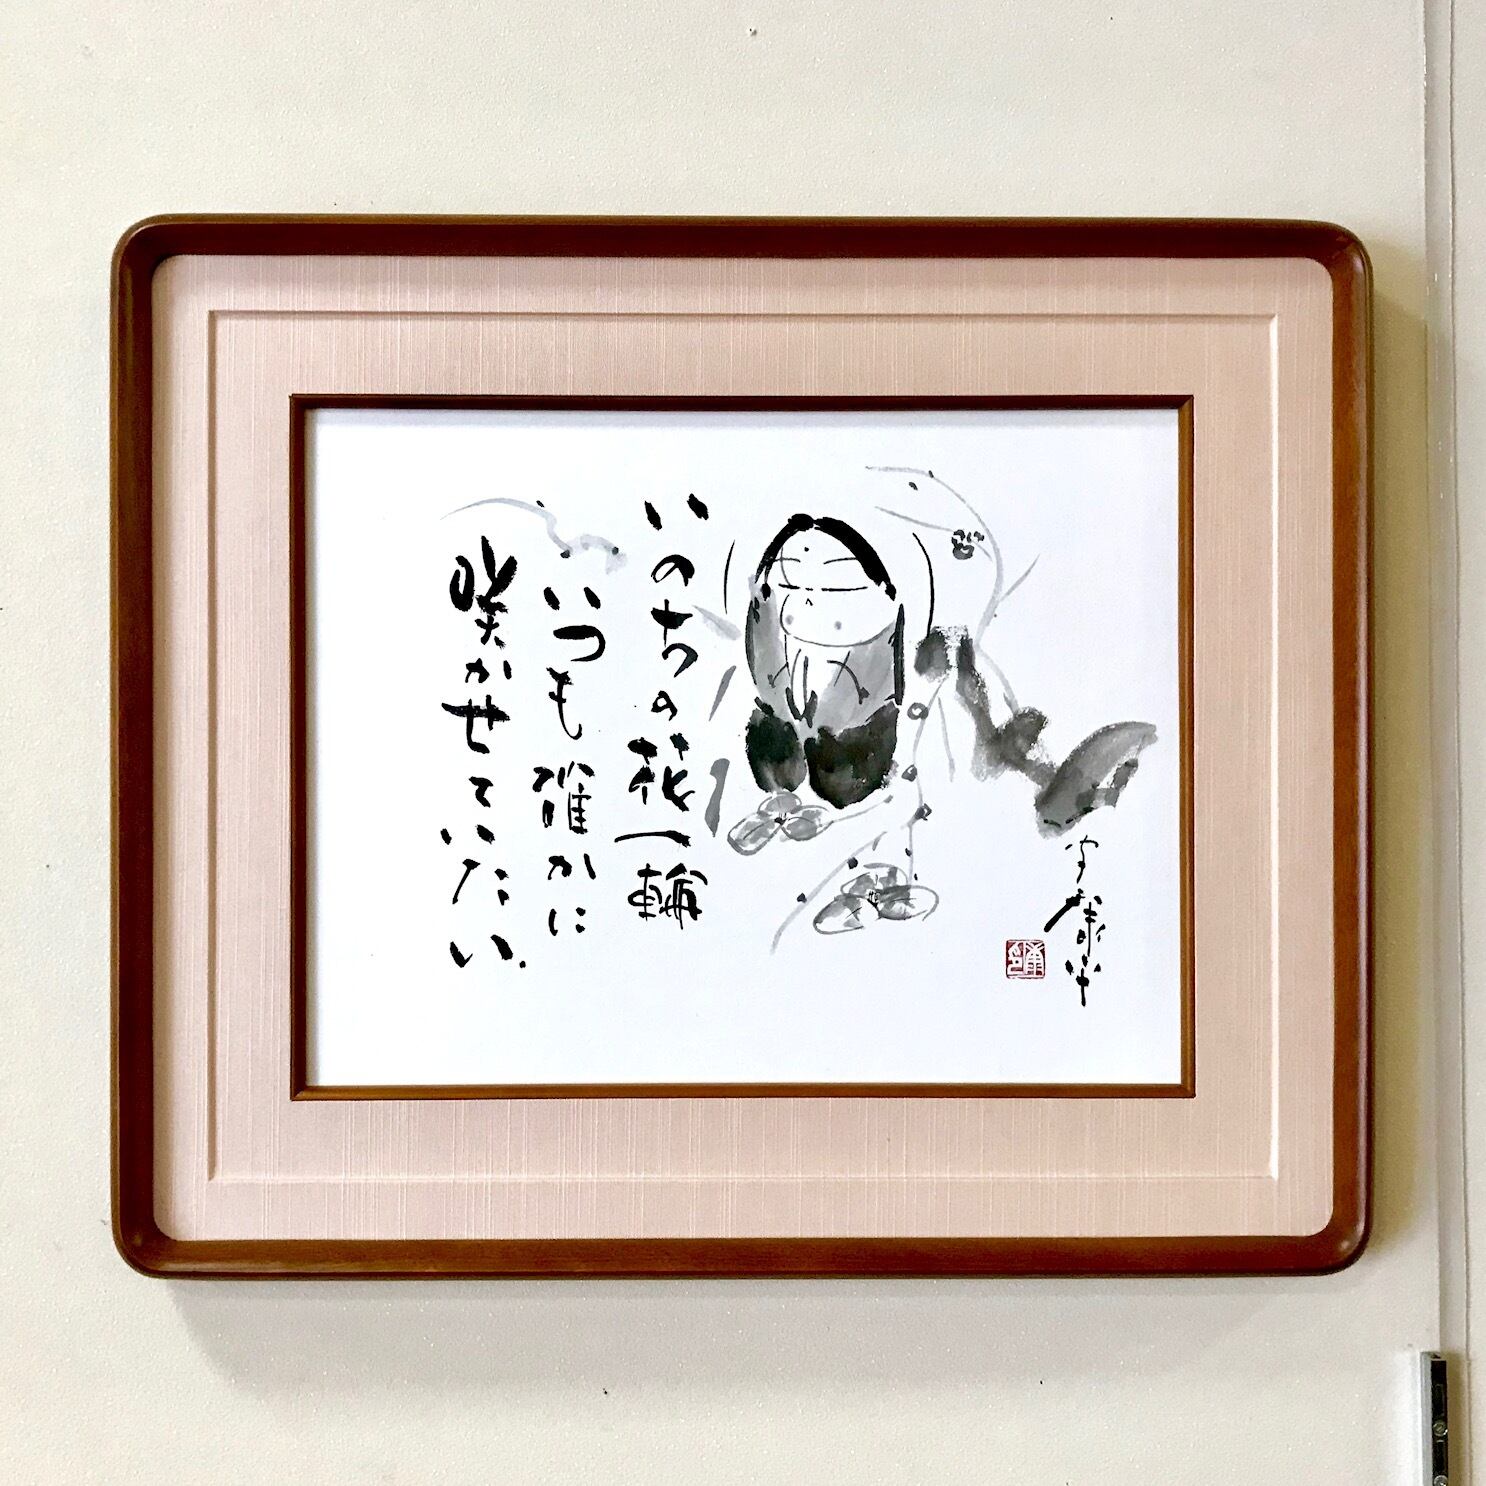 いのちの花一輪
いつも確かに
咲かせていたい.